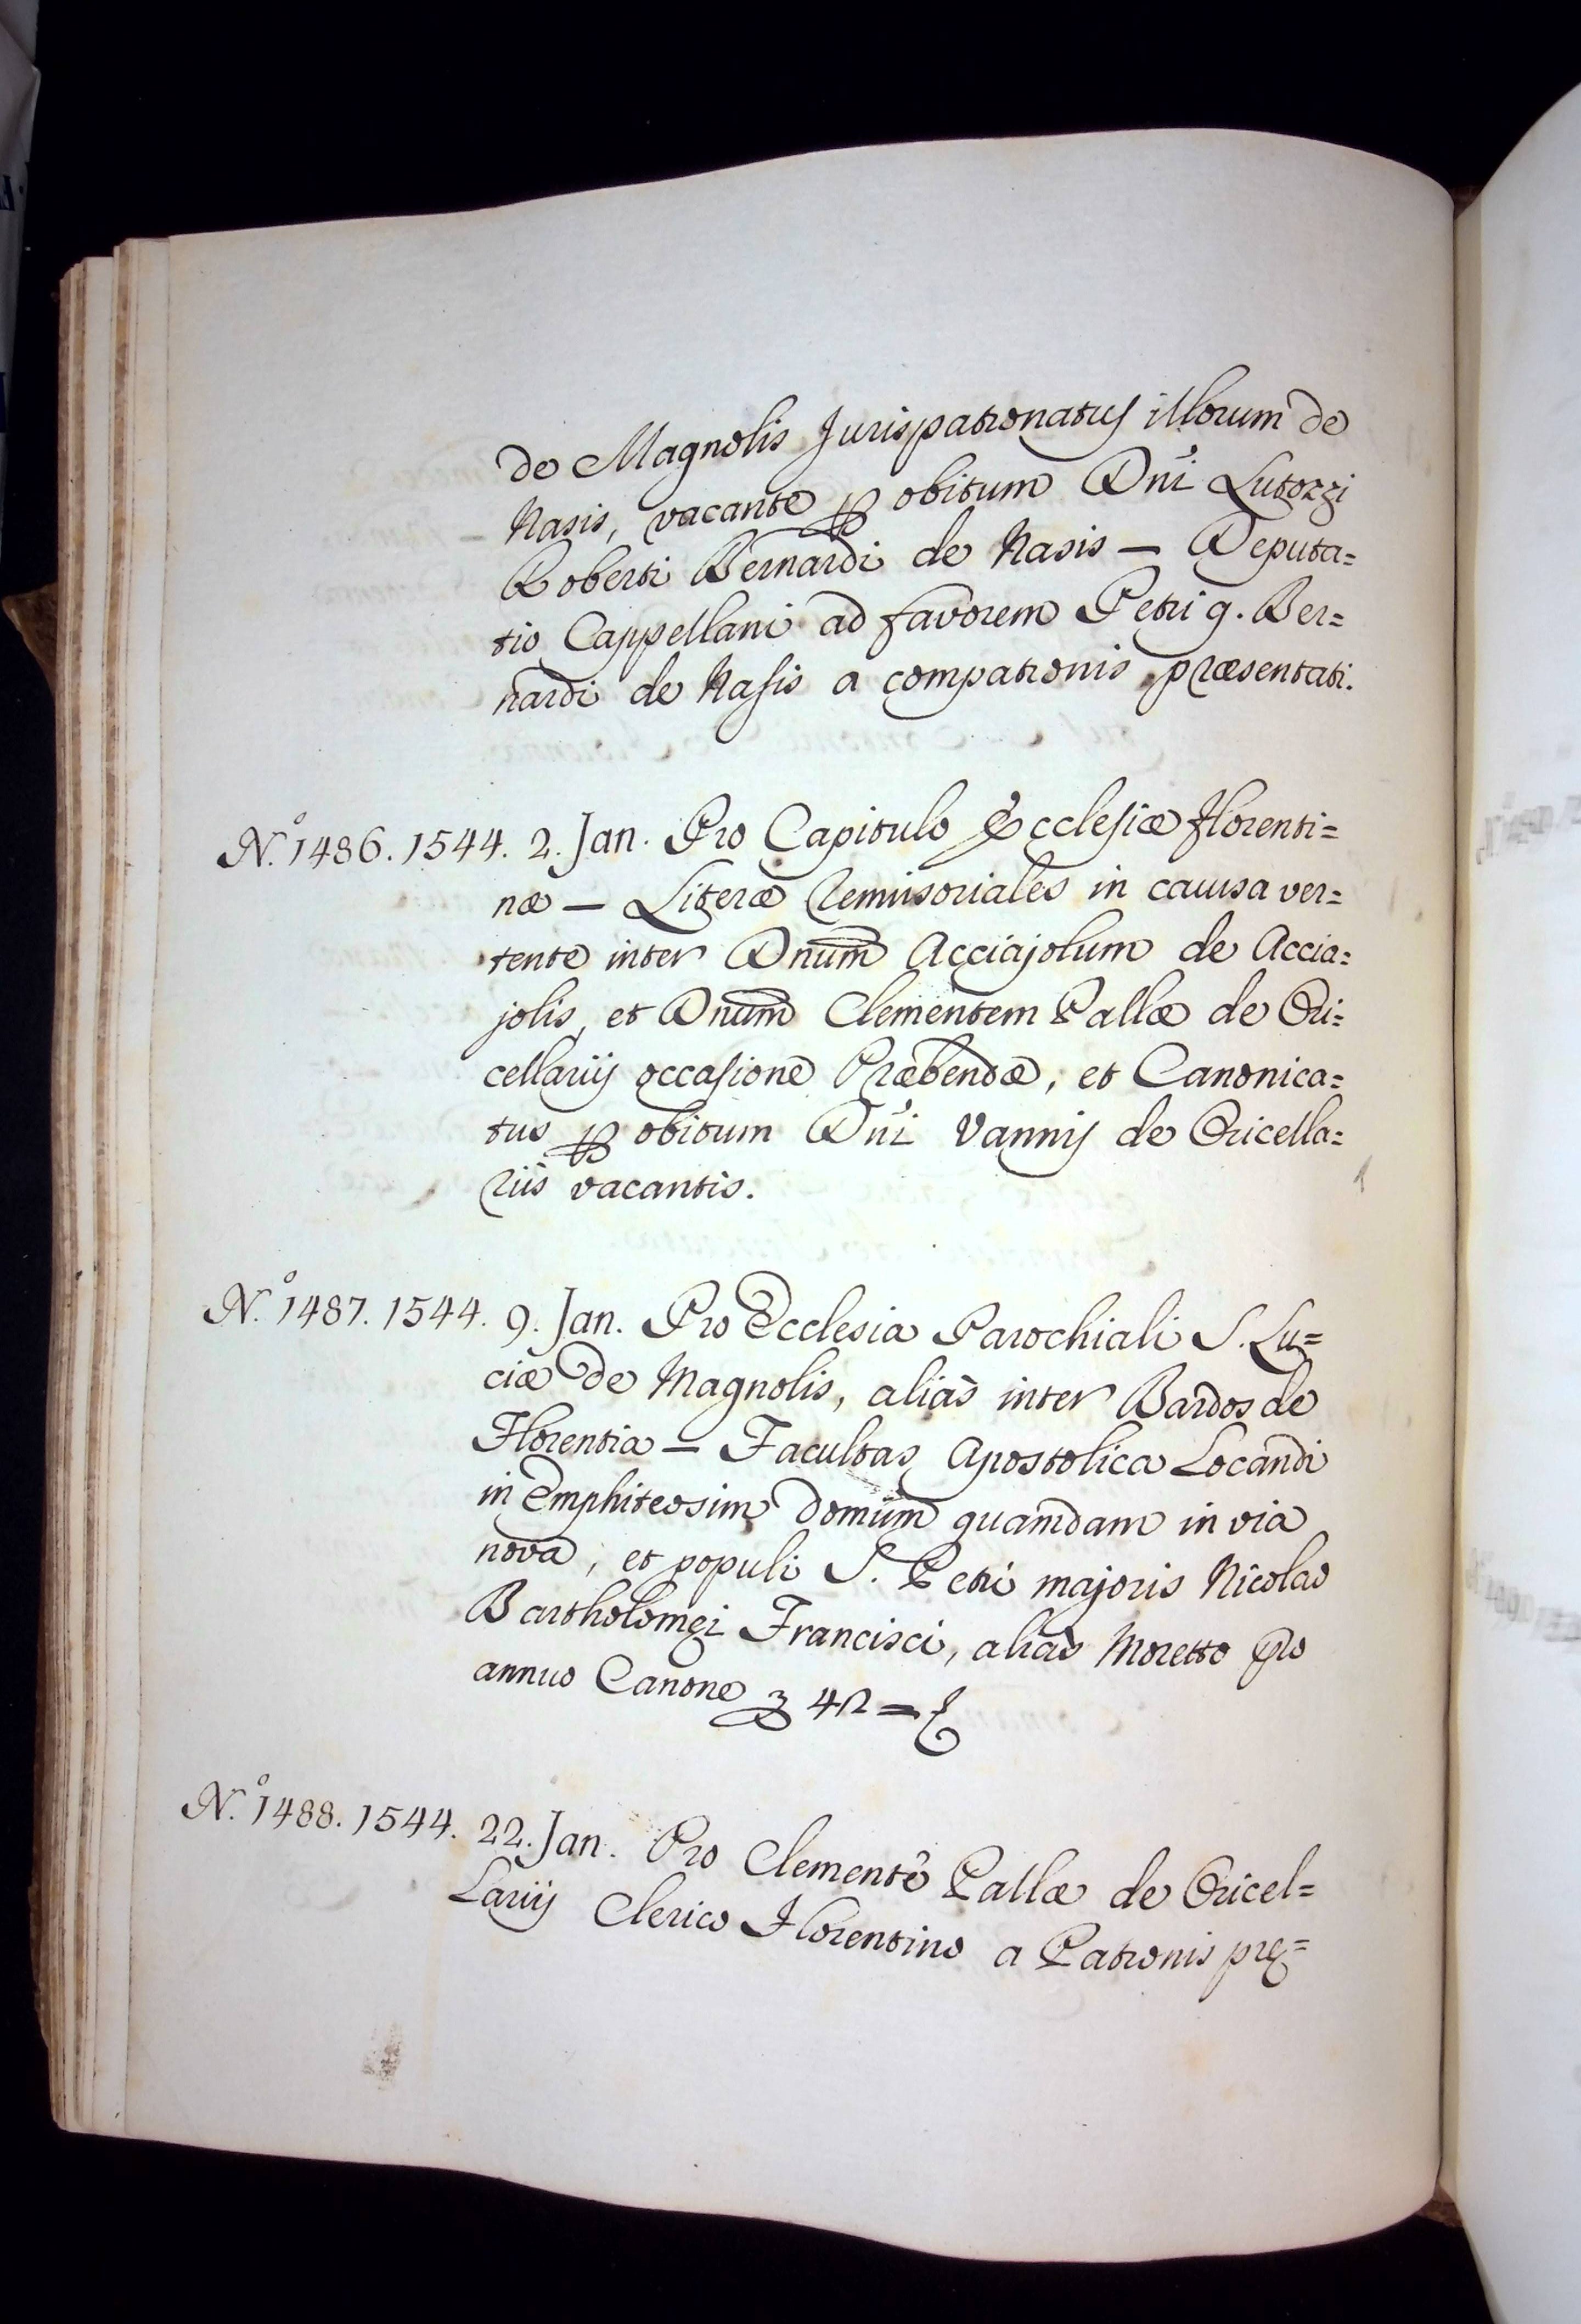 de Magnolis Jurispatronatus illorum de
Nasis, vacante ꝑ obitum Dñi Lutozzi
Roberti Bernardi de Nasis — Deputa=
tio Cappellani ad favorem Petri q. Ber=
nardi de Nasis a compatronis præsentati.
N.º 1486. 1544. 2. Jan. Pro Capitulo Ecclesiæ Florenti=
næ — Literæ Remisoriales in caussa ver=
tente inter Dnum̃ Acciajolum de Accia=
jolis, et Dnum̃ Clementem Pallæ de Ori=
cellarijs occasione Præbendæ, et Canonica=
tus ꝑ obitum Dñi Vannis de Oricella=
riis vacantis.
N.º 1487. 1544. 9. Jan. Pro Ecclesia Parochiali S. Lu=
ciæ de Magnolis, aliàs inter Bardos de
Florentia — Facultas Apostolica Locandi
in Emphiteosim domum quamdam in via
nova, et populi S. Petri majoris Nicolao
Bartholomęi Francisci, aliàs Moretto pro
annuo Canone
N.º 1488. 1544. 22. Jan. Pro Clemente Pallæ de Oricel=
larijs Clerico Florentino a Patronis prę=